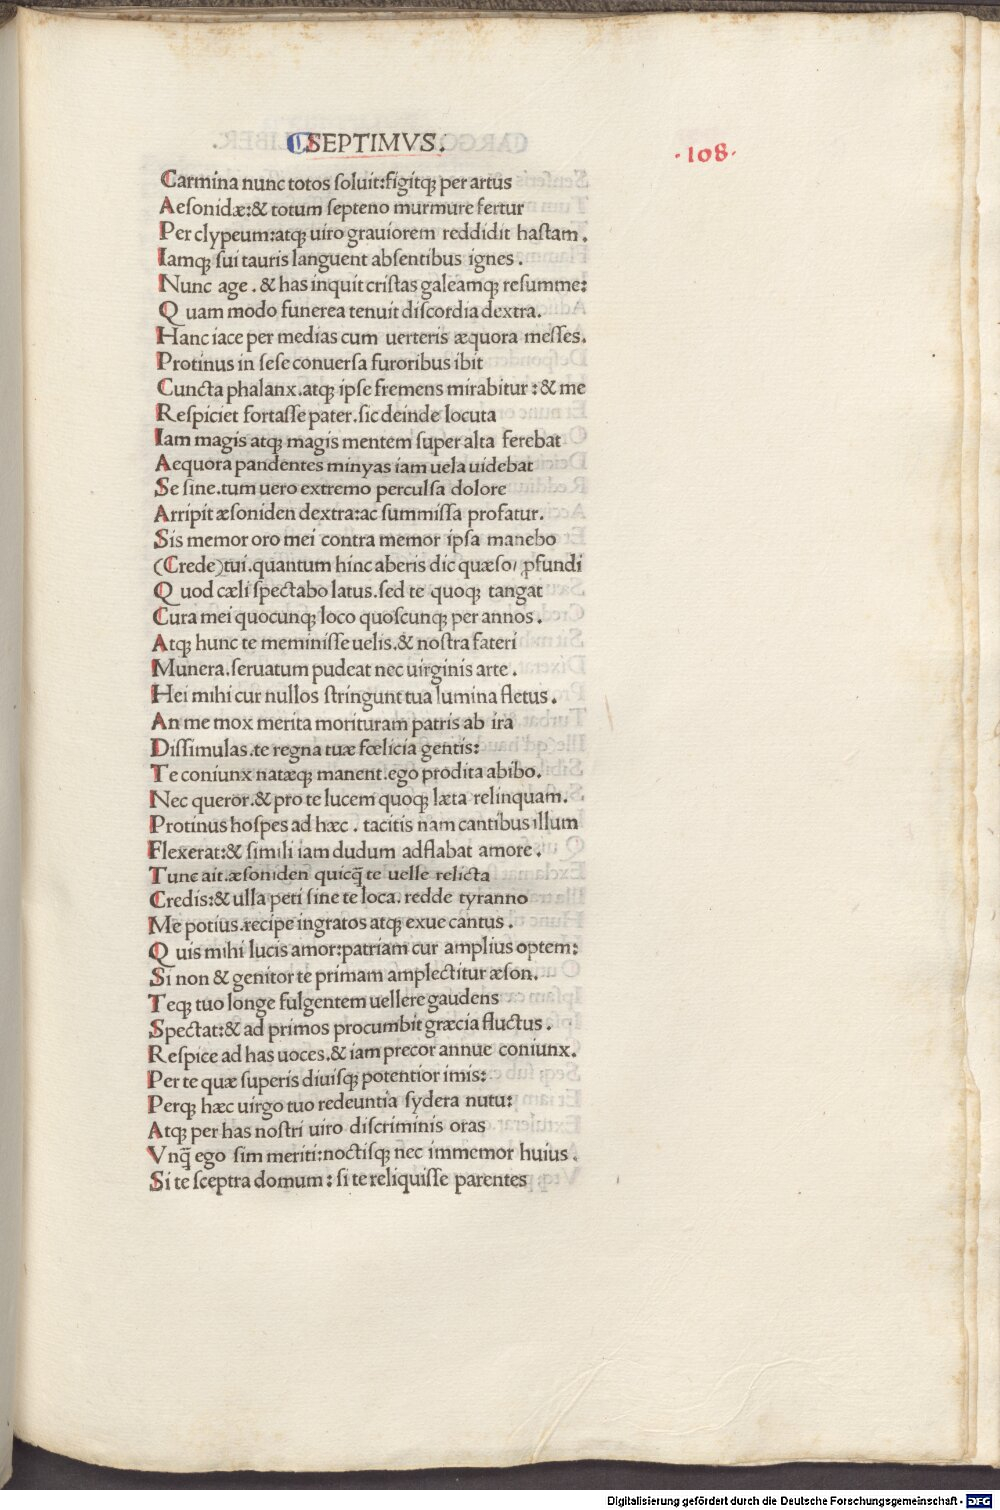 SEPTIMVS.
·108·
Carmina nunc totos soluit: figitqꝫ per artus
Aesonidæ: & totum septeno murmure fertur
Per clypeum: atqꝫ uiro grauiorem reddidit hastam.
Iamqꝫ sui tauris languent absentibus ignes.
Nunc age. & has inquit cristas galeamqꝫ resumme:
Quam modo funerea tenuit discordia dextra.
Hanc iace per medias cum uerteris æquora messes.
Protinus in sese conuersa furoribus ibit
Cuncta phalanx. atqꝫ ipse fremens mirabitur: & me
Respiciet fortasse pater. sic deinde locuta
Iam magis atqꝫ magis mentem super alta ferebat
Aequora pandentes minyas iam uela uidebat
Se sine. tum uero extremo perculsa dolore
Arripit æsoniden dextra: ac summissa profatur.
Sis memor oro mei contra memor ipsa manebo
(Crede) tui. quantum hinc aberis dic quæso/ ꝓfundi
Quod cæli spectabo latus. sed te quoqꝫ tangat
Cura mei quocunqꝫ loco quoscunqꝫ per annos.
Atqꝫ hunc te meminisse uelis. & nostra fateri
Munera. seruatum pudeat nec uirginis arte.
Hei mihi cur nullos stringunt tua lumina fletus.
An me mox merita morituram patris ab ira
Dissimulas. te regna tuæ fœlicia gentis:
Te coniunx natæqꝫ manent. ego prodita abibo.
Nec queror. & pro te lucem quoqꝫ læta relinquam.
Protinus hospes ad hæc. tacitis nam cantibus illum
Flexerat: & simili iam dudum adflabat amore.
Tune ait. æsoniden quicq̄ te uelle relicta
Credis: & ulla peti sine te loca. redde tyranno
Me potius. recipe ingratos atqꝫ exue cantus.
Quis mihi lucis amor: patriam cur amplius optem:
Si non & genitor te primam amplectitur æson.
Teqꝫ tuo longe fulgentem uellere gaudens
Spectat: & ad primos procumbit græcia fluctus.
Respice ad has uoces. & iam precor annue coniunx.
Per te quæ superis diuisqꝫ potentior imis:
Perqꝫ hæc uirgo tuo redeuntia sydera nutu:
Atqꝫ per has nostri uiro discriminis oras
Vnq̄ ego sim meriti: noctisqꝫ nec immemor huius.
Si te sceptra domum: si te reliquisse parentes
Digitalisierung gefördert durch die Deutsche Forschungsgemeinschaft - DFG